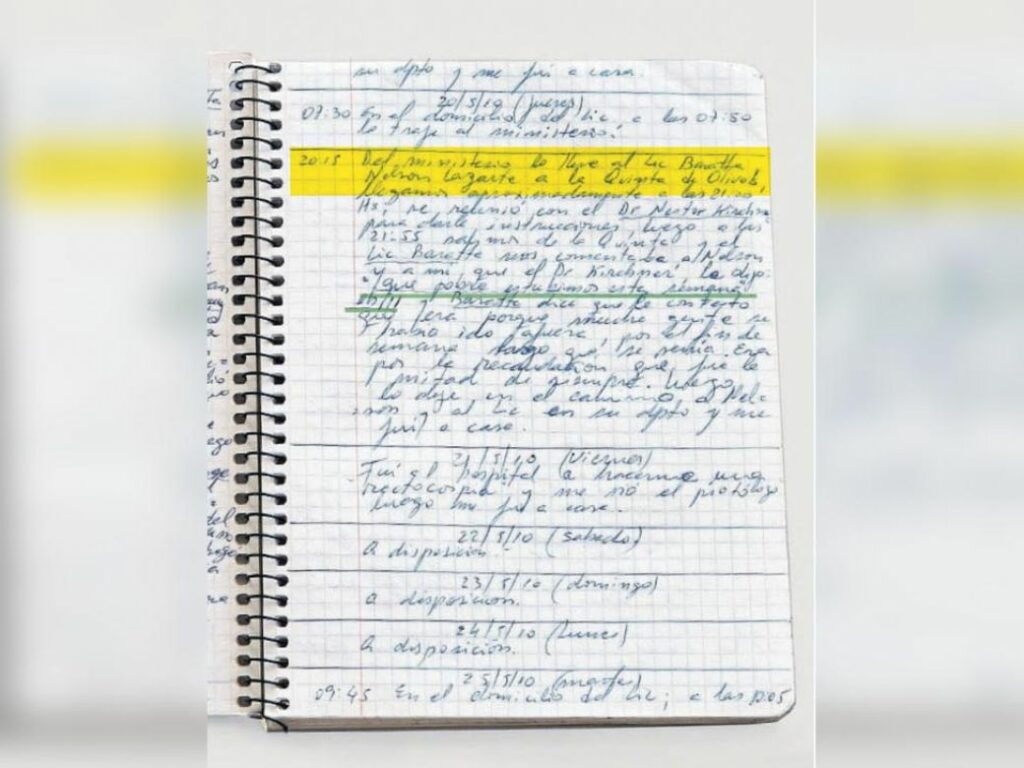 su dpto y me fui a casa.
20/5/10 (jueves)
07:30 En el domicilio del Lic, a las 07:50
lo traje al ministerio.
20:15 Del ministerio lo lleve al Lic Baratta
Nelson Lazarte a la Quinta de Olivos,
llegamos aproximadamente a las 21:00
Hs, se reunió con el Dr Nestor Kirchner
para darle instrucciones, luego a las
21:55 salimos de la Quinta y el
Lic Baratta nos comentaba a Nelson
y a mi, que el Dr. Kirchner, le dijo:
"que pobre estuvimos esta semana"
Baratta dice que le contesto
que era porque mucha gente se
habia ido afuera, por el fin de
semana largo que se venia. Era
por la recaudación que fue la
mitad de siempre. Luego
lo deje en el camino a Nel-
son y al Lic en su dpto y me
fui a casa.
21/5/10 (viernes)
Fui al hospital a hacerme una
y me vio el
luego me fui a casa.
22/5/10 (sabado)
a disposicion.
23/5/10 (domingo)
a disposicion.
24/5/10 (lunes)
a disposición.
25/5/10 (martes)
09:45 En el domicilio del Lic; a las 10:05